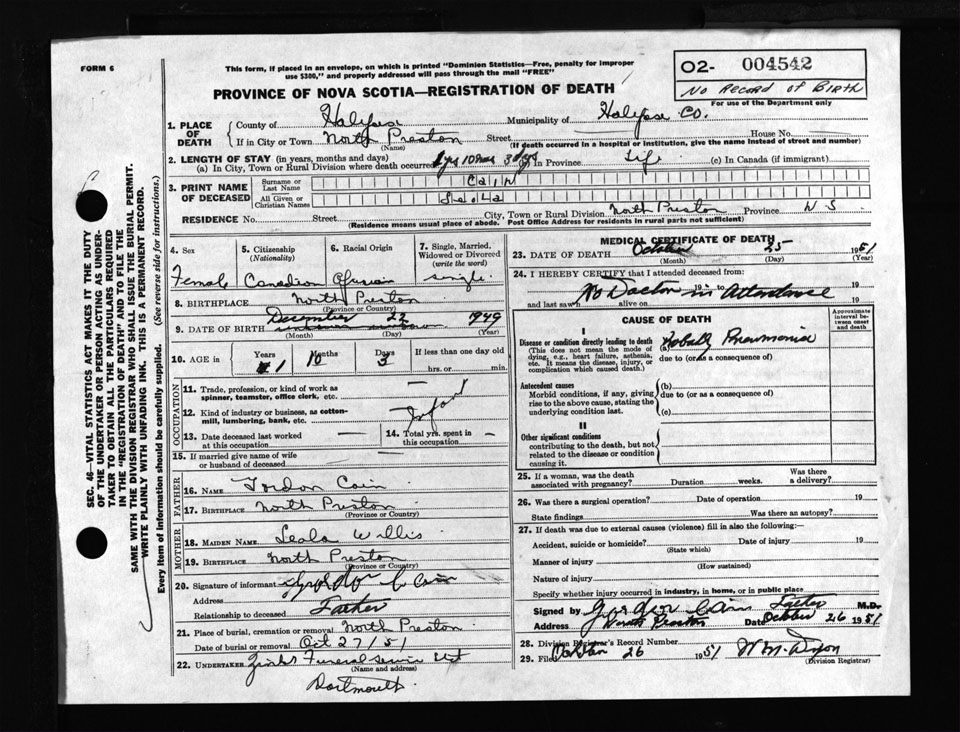 FORM 6
This form, if placed in an envelope, on which is printed "Dominion Statistics—Free, penalty for improper
use $300," and properly addressed will pass through the mail "FREE"
PROVINCE OF NOVA SCOTIA—REGISTRATION OF DEATH
O2- 004542
No Record of Birth
For use of the Department only
1. PLACE OF DEATH
County of Halifax Municipality of Halifax Co.
If in City or Town North Preston Street House No.
(Name) (If death occurred in a hospital or institution, give the name instead of street and number)
2. LENGTH OF STAY (in years, months and days)
(a) In City, Town or Rural Division where death occurred 1 yrs 10 mos 3 dys (b) In Province Life (c) In Canada (if immigrant)
3. PRINT NAME OF DECEASED
Surname or Last Name Cain
All Given or Christian Names
RESIDENCE No. Street City, Town or Rural Division North Preston Province N S.
(Residence means usual place of abode. Post Office Address for residents in rural parts not sufficient)
4. Sex Female
5. Citizenship (Nationality) Canadian
6. Racial Origin African
7. Single, Married, Widowed or Divorced (write the word) single
8. BIRTHPLACE North Preston
(Province or Country)
9. DATE OF BIRTH December 22 1949
(Month) (Day) (Year)
10. AGE in Years 1 Months 10 Days 3 If less than one day old hrs. or min.
OCCUPATION
11. Trade, profession, or kind of work as spinner, teamster, office clerk, etc.
12. Kind of industry or business, as cotton-mill, lumbering, bank, etc.
Infant
13. Date deceased last worked at this occupation —
14. Total yrs. spent in this occupation —
15. If married give name of wife or husband of deceased
FATHER
16. NAME Gordon Cain
17. BIRTHPLACE North Preston
(Province or Country)
MOTHER
18. MAIDEN NAME Leala Willis
19. BIRTHPLACE North Preston
(Province or Country)
20. Signature of informant Cain
Address
Relationship to deceased Father
21. Place of burial, cremation or removal North Preston
Date of burial or removal Oct 27/51
22. UNDERTAKER Funeral Service
(Name and address)
Dartmouth
MEDICAL CERTIFICATE OF DEATH
23. DATE OF DEATH October 25 1951
(Month) (Day) (Year)
24. I HEREBY CERTIFY that I attended deceased from:
No Doctor in Attendance
19 19
and last saw alive on 19
CAUSE OF DEATH
Approximate interval between onset and death
I
Disease or condition directly leading to death
(This does not mean the mode of dying, e.g., heart failure, asthenia, etc. It means the disease, injury, or complication which caused death.)
Pneumonia
due to (or as a consequence of)
Antecedent causes
Morbid conditions, if any, giving rise to the above cause, stating the underlying condition last.
(b)
due to (or as a consequence of)
(c)
II
Other significant conditions
contributing to the death, but not related to the disease or condition causing it.
25. If a woman, was the death associated with pregnancy? Duration weeks. Was there a delivery?
26. Was there a surgical operation? Date of operation 19
State findings Was there an autopsy?
27. If death was due to external causes (violence) fill in also the following:—
Accident, suicide or homicide? Date of injury 19
(State which)
Manner of injury
(How sustained)
Nature of injury
Specify whether injury occurred in industry, in home, or in public place
Signed by Gordon Cain Father M.D.
Address North Preston Date October 26 1951
28. Division Registrar's Record Number
29. Filed October 26 1951 W M. Dixon
(Division Registrar)
SEC. 46—VITAL STATISTICS ACT MAKES IT THE DUTY
OF THE UNDERTAKER OR PERSON ACTING AS UNDER-
TAKER TO OBTAIN ALL THE PARTICULARS REQUIRED
IN THE "REGISTRATION OF DEATH" AND TO FILE THE
SAME WITH THE DIVISION REGISTRAR WHO SHALL ISSUE THE BURIAL PERMIT.
WRITE PLAINLY WITH UNFADING INK. THIS IS A PERMANENT RECORD.
Every item of information should be carefully supplied. (See reverse side for instructions.)